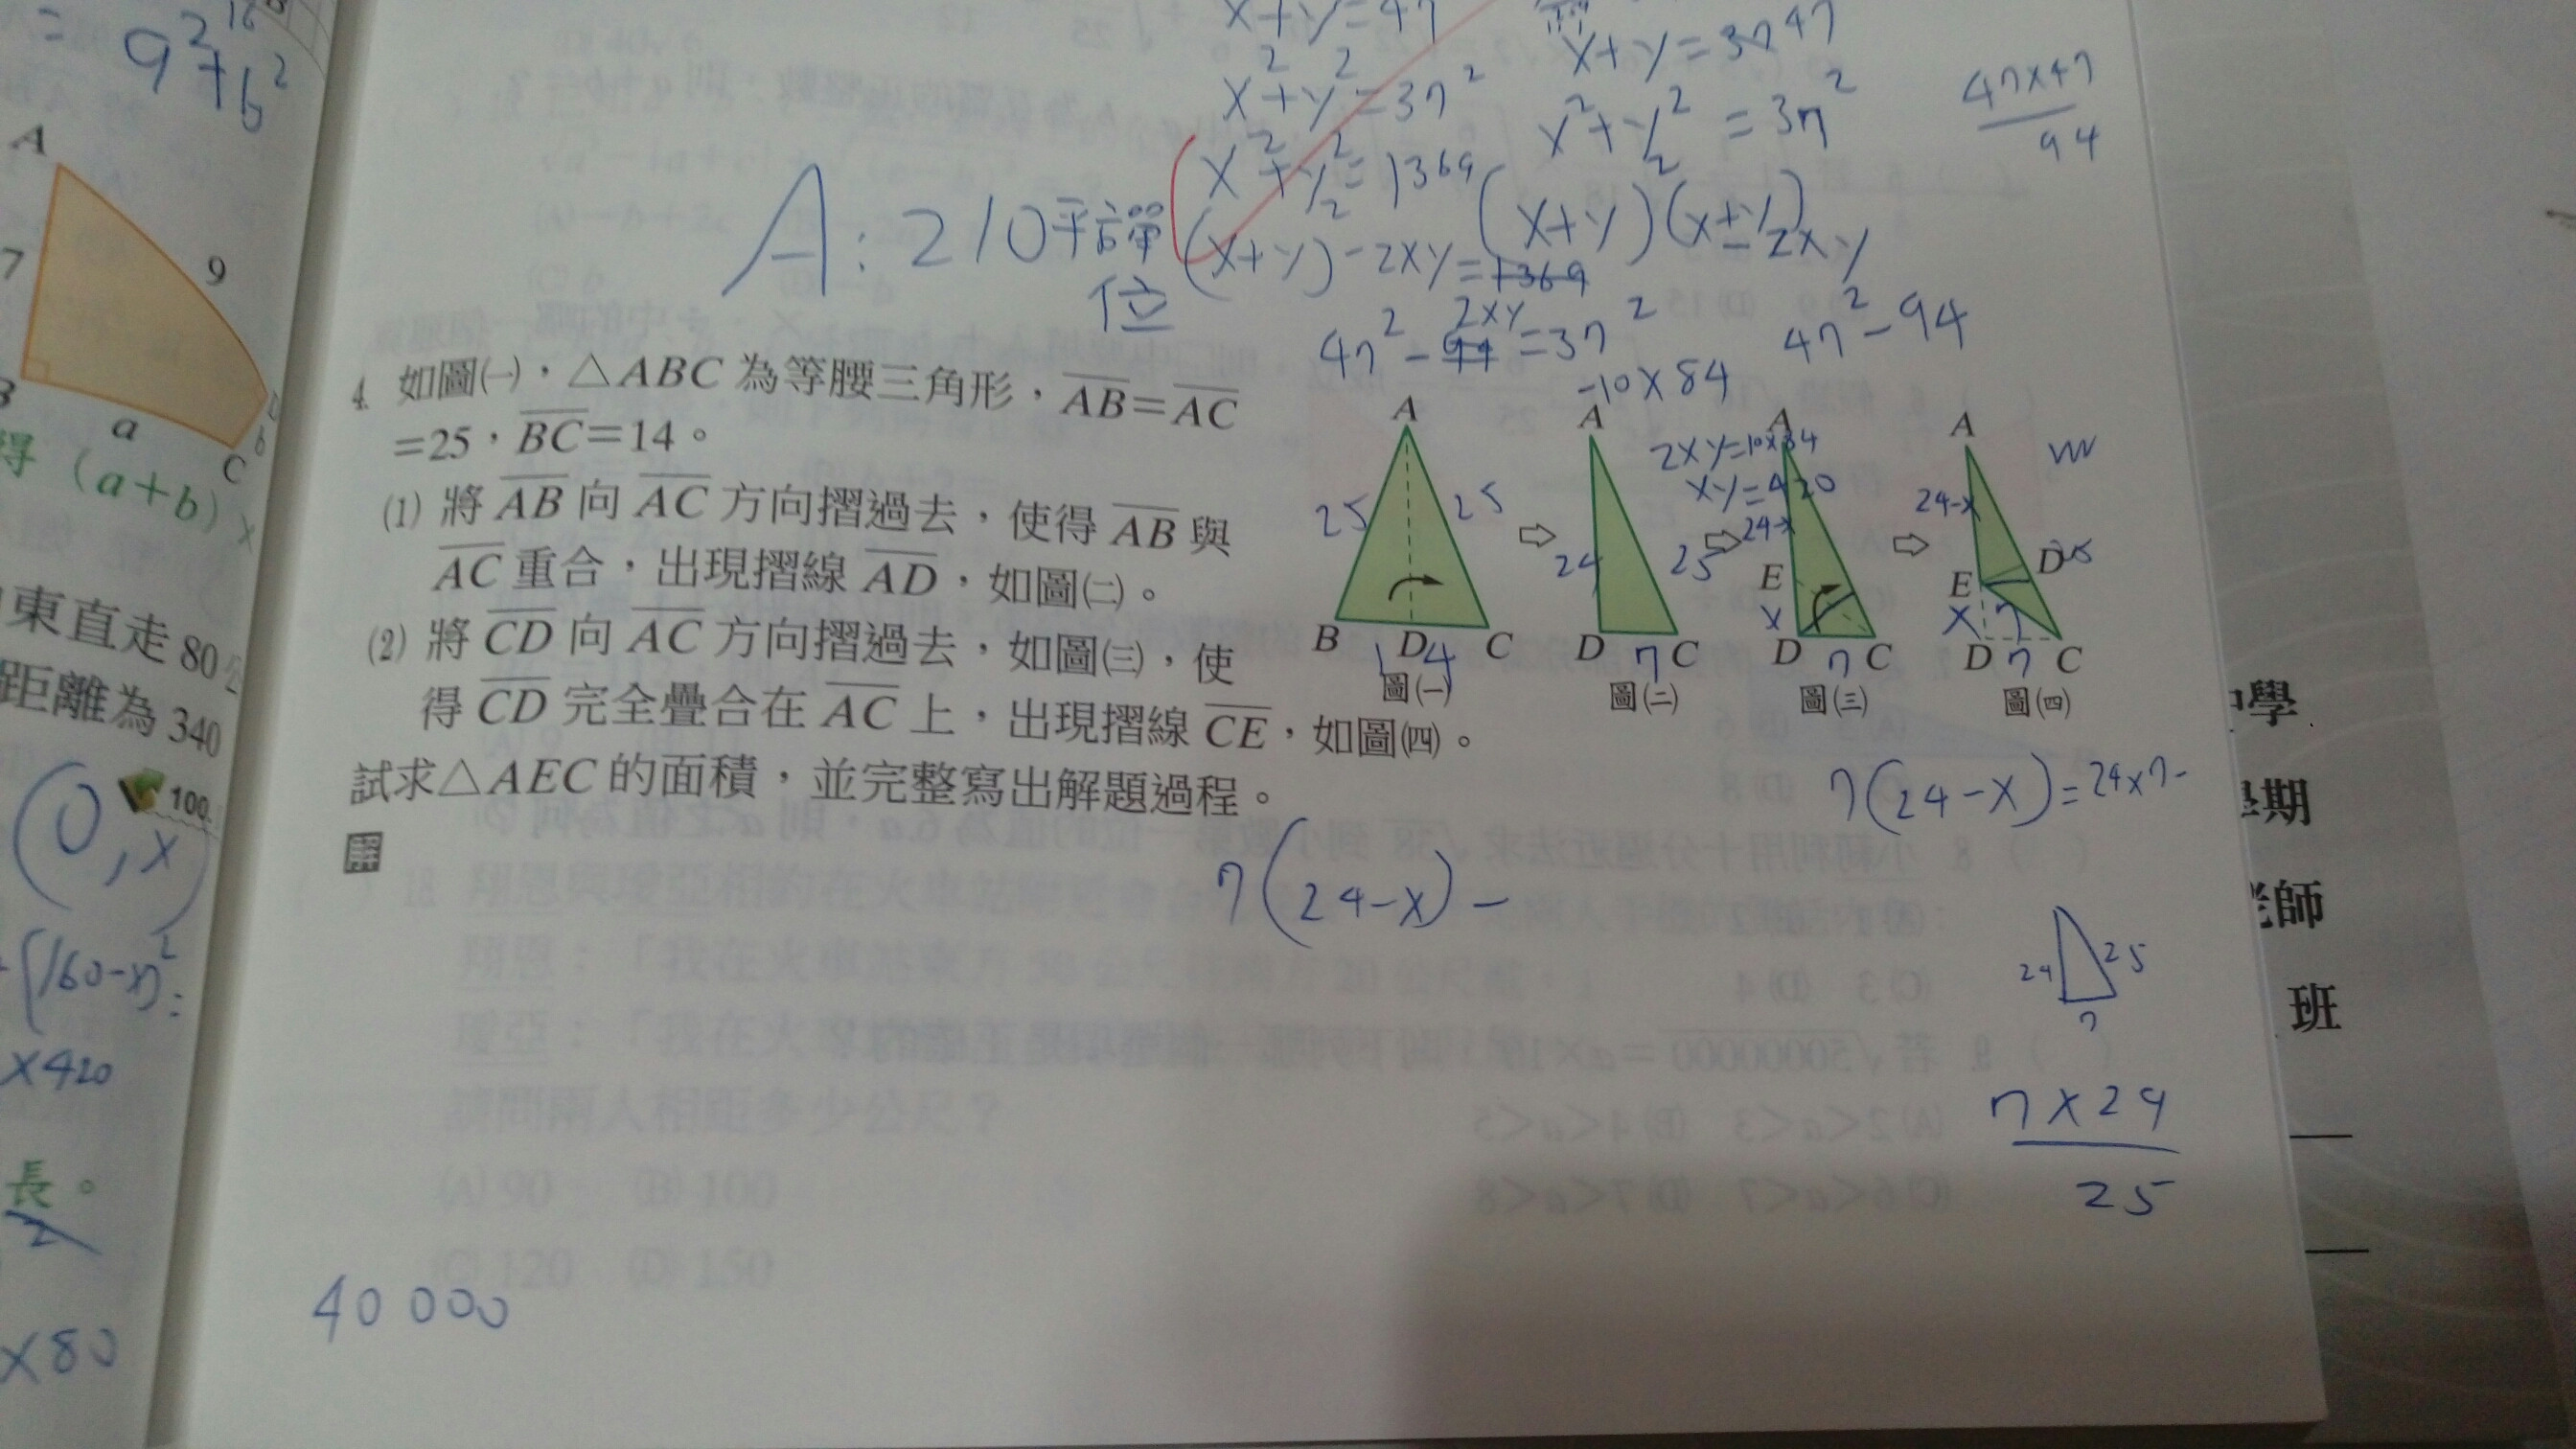 = 9² 16
+b²
A
7
9
a
b
C
得 (a+b) x
東直走 80
距離為 340
100
(0, x)
(160-x)² =
x420
長。
2
x80
x+y=47
x²+y²=37²
x²+y²=1369
(x+y)²-2xy=1369
47²-94=37²
2xy
-10x84
x+y=37 47
x²+y²=37²
(x+y)(x+y)
-2xy
47²-94
47x47
94
A:210平方單
位
2xy=10x84
xy=420
4. 如圖㈠,△ABC 為等腰三角形,AB=AC
=25,BC=14。
⑴ 將 AB 向 AC 方向摺過去,使得 AB 與
AC 重合,出現摺線 AD,如圖㈡。
⑵ 將 CD 向 AC 方向摺過去,如圖㈢,使
得 CD 完全疊合在 AC 上,出現摺線 CE,如圖㈣。
試求△AEC 的面積,並完整寫出解題過程。
解
A
25 25
B D C
14
圖㈠
A
24 25
D 7 C
圖㈡
A
24-x
E
x
D 7 C
圖㈢
A
24-x
D
E
x 7
D 7 C
圖㈣
7(24-x)=24x7-
7(24-x)-
24 25
7
7x24
25
40000
中學
學期
老師
班